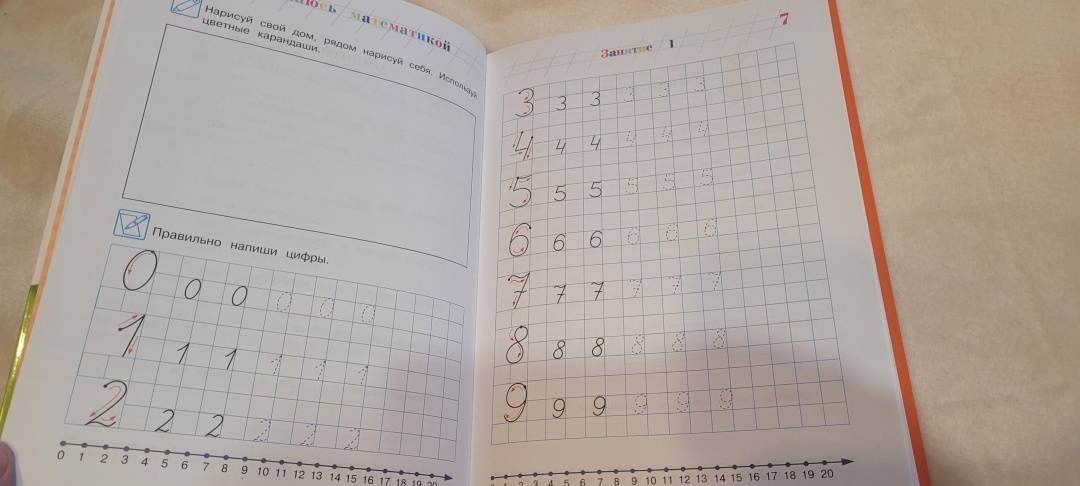 математикой
Нарисуй свой дом, рядом нарисуй себя. Используй
цветные карандаши.
Правильно напиши цифры.
0 0 0 0 0 0
1 1 1 1 1 1
2 2 2 2 2 2
0 1 2 3 4 5 6 7 8 9 10 11 12 13 14 15 16 17 18 19 20
7
Занятие 1
3 3 3 3 3 3
4 4 4 4 4 4
5 5 5 5 5 5
6 6 6 6 6 6
7 7 7 7 7 7
8 8 8 8 8 8
9 9 9 9 9 9
1 2 3 4 5 6 7 8 9 10 11 12 13 14 15 16 17 18 19 20